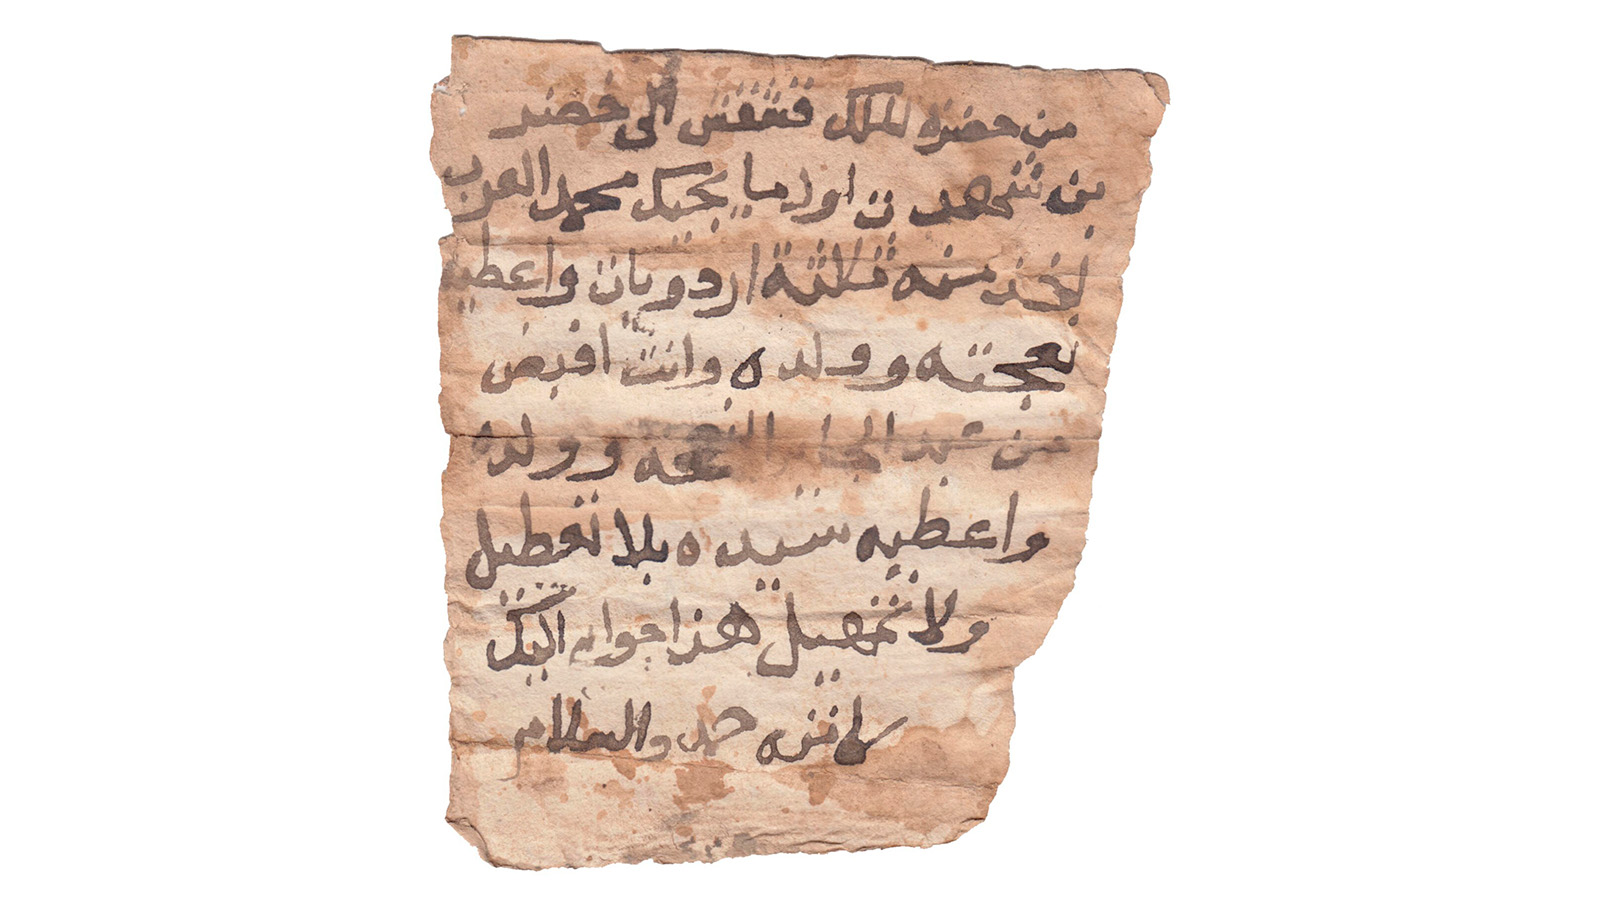 من حضرة الملك قشقش الى خضر
بن شجهدن اول ما يجيك محمد العرب
ياخذ منه ثلاثة اردويات واعطيه
نعجته وولده وانت اقبض
من عبد الجابر النعجه وولده
واعطيه سيده بلا تعطيل
ولا تمهيل هذا جواب اليك
لا تنزه حد والسلام